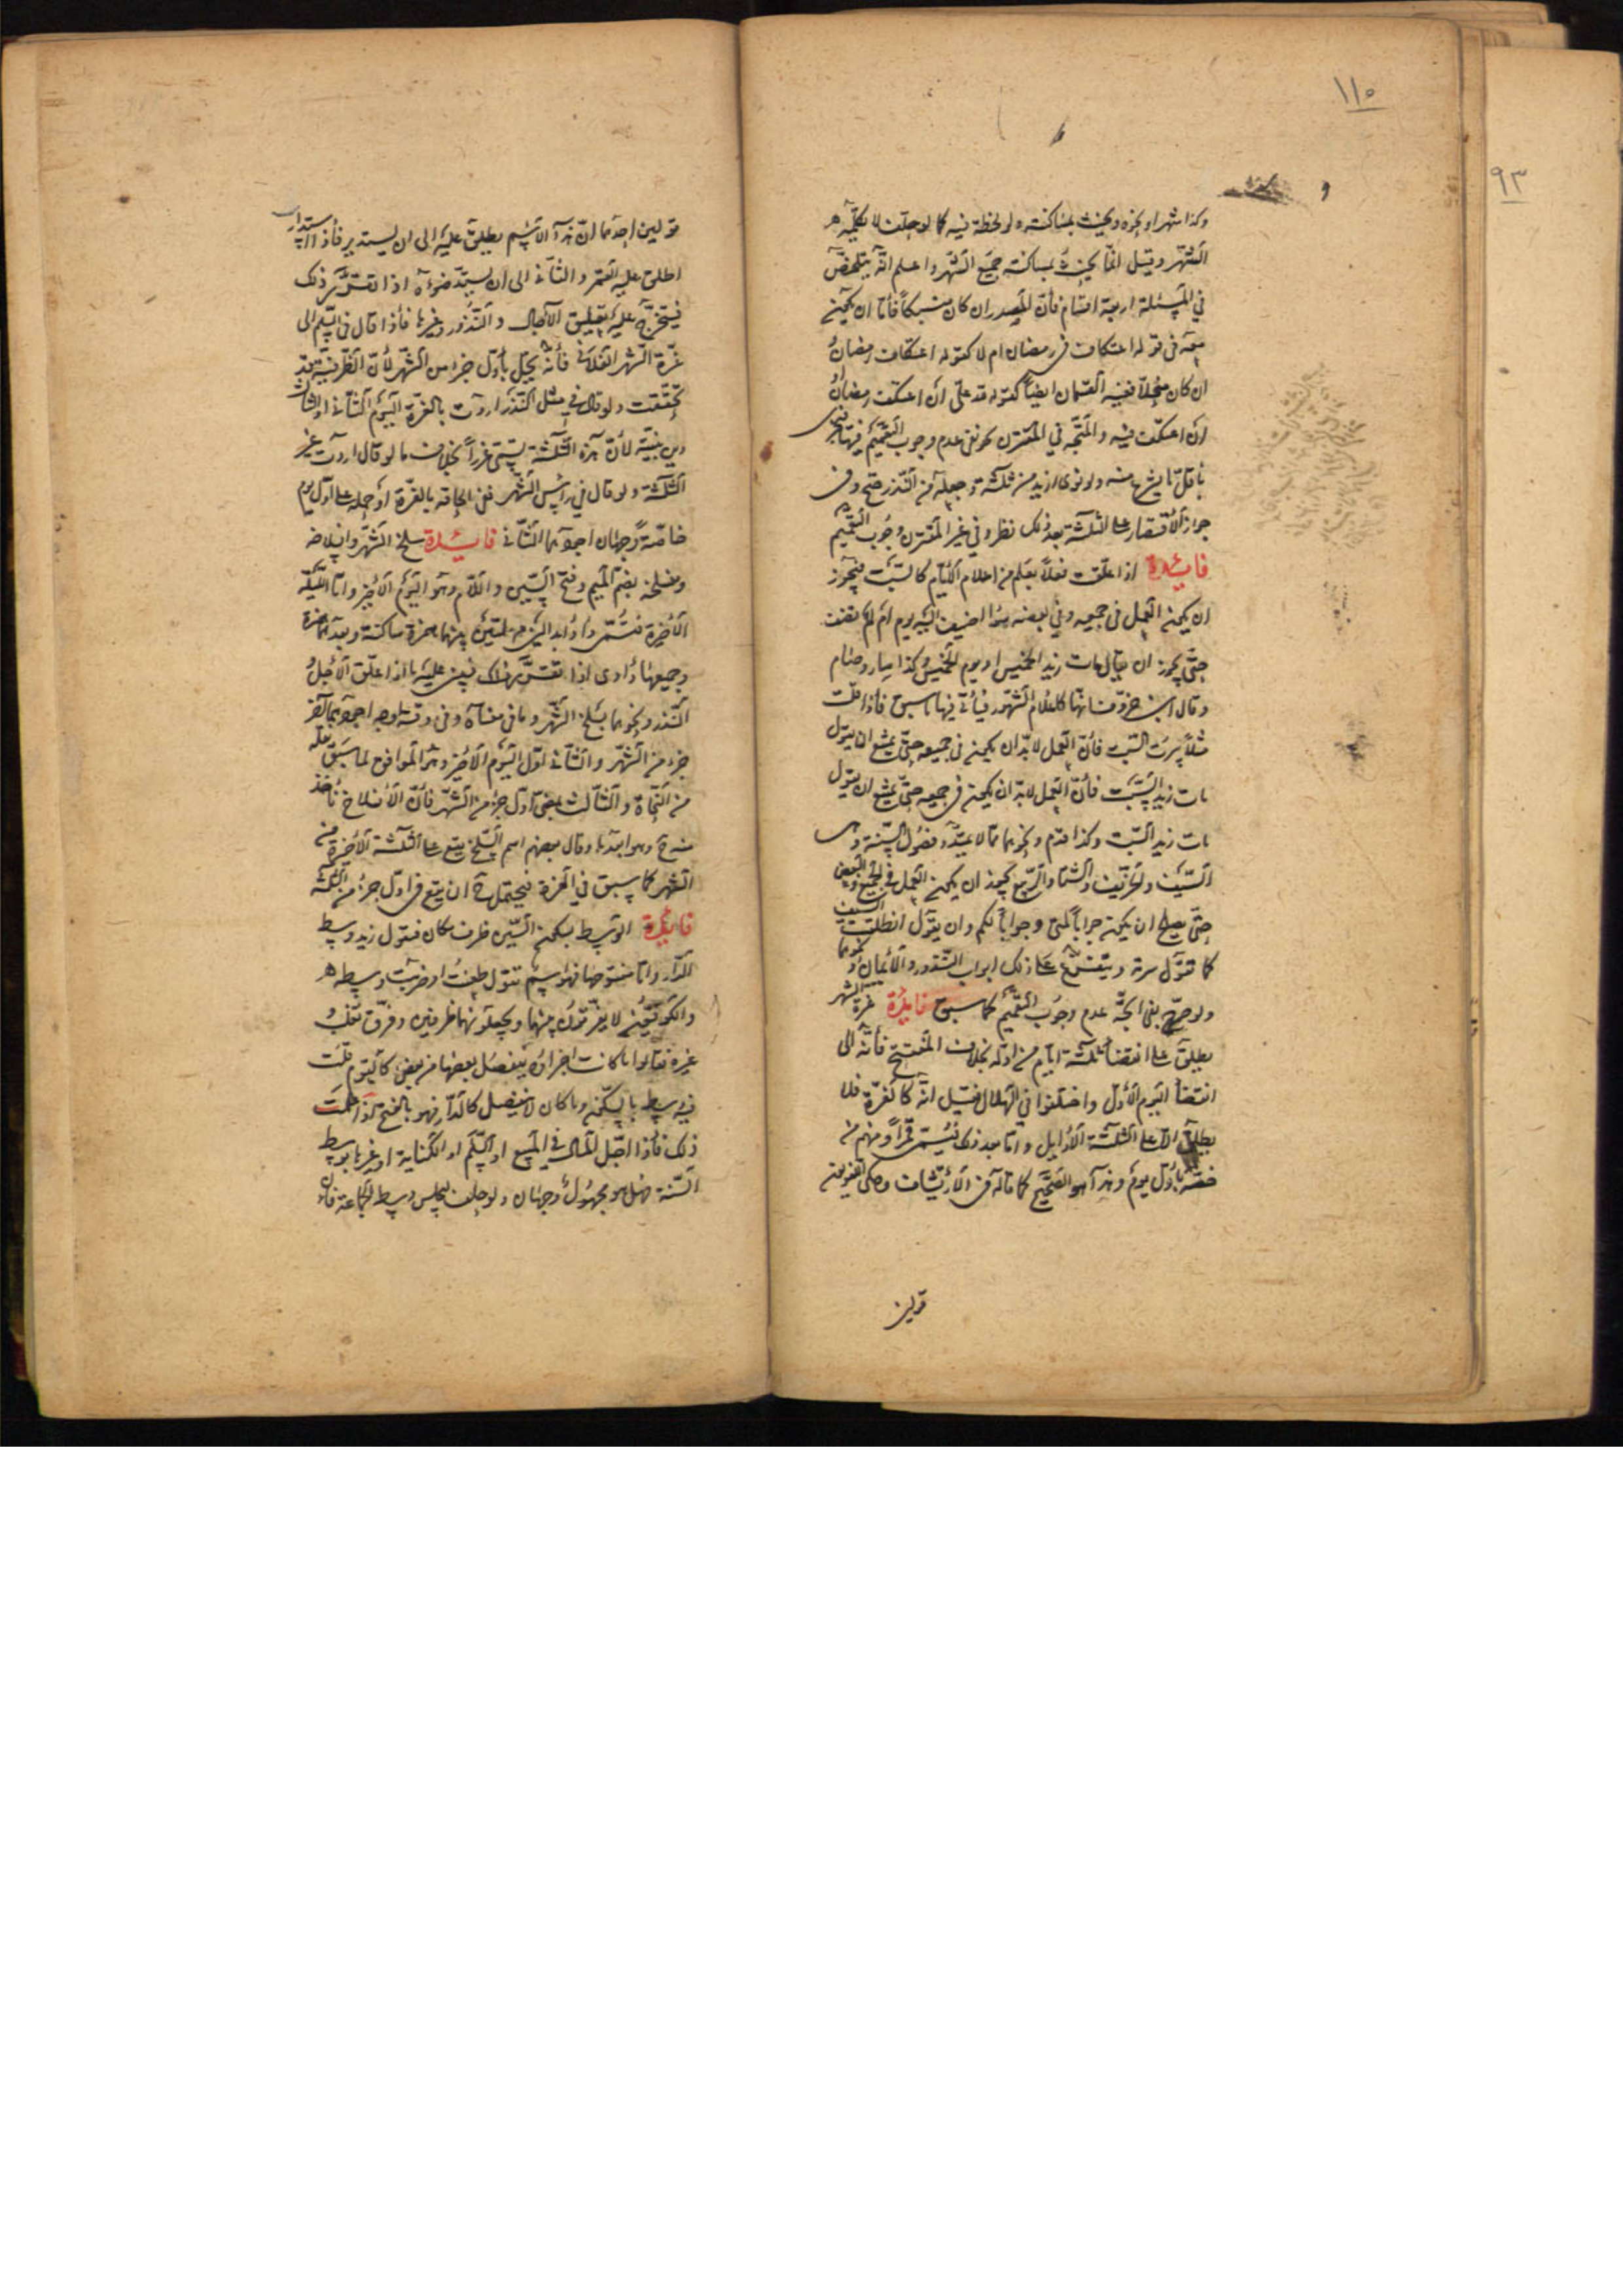 ١١٥
٩٣
وكذا شهرا ونحوه ويحنث بمساكنته ولو لحظة فيه كما لو حلف لا يكلمه
الشهر وقيل انما يحنث بمساكنته جميع الشهر واعلم انه يتلخص
في المسئلة اربعة اقسام فان المصدر ان كان منسبكا فاما ان يكون
معه في قوله اعتكاف في رمضان ام لا كقوله اعتكاف رمضان
ان كان منحلا ففيه القسمان ايضا كقوله لله على ان اعتكف رمضان
ان اعتكف فيه والمتجه في المقترن كونفى عدم وجوب التعميم فيها
باقل ما يشرع منه ولو نوى ازيد من ثلثة وجعله من النذر صح وفى
جواز الاقتصار على الثلثة بعد ذلك نظر وفي غير المقترن وجوب التعميم
فائدة اذا علق فعلا بعلم من اعلام الايام كالسبت فيجوز
ان يكون العمل في جميعه وفي بعضه سواء اضيف اليه يوم ام لم يضف
حتى يجوز ان يقال مات زيد الخميس او يوم الخميس وكذا سار وصام
وقال ابن خروف انها كاعلام الشهور فياتى فيها ما سبق فاذا قلت
مثلا سرت السبت فان العمل لا بد ان يكون في جميعه حتى يمتنع ان يقول
مات زيد السبت فان العمل لا بد ان يكون في جميعه حتى يمتنع ان يقول
مات زيد السبت وكذا قدم ونحوهما مما لا يمتد وفصول السنة وهى
الصيف والخريف والشتاء والربيع يجوز ان يكون العمل في الجميع وفي البعض
حتى يصلح ان يكون جوابا لمتى وجوابا لكم وان يقول انطلقت الصيف
كما تقول سرته ويتفرع على ذلك ابواب النذور والايمان ونحوهما
ولو صرح بفي اتجه عدم وجوب التعميم كما سبق فائدة غرة الشهر
يطلق على انقضاء ثلثة ايام من اوله بخلاف المفتتح فانه الى
انقضاء اليوم الاول واختلفوا في الهلال فقيل انه كالغرة فلا
يطلق الا على الثلثة الاوايل واما بعد ذلك فيسمى قمرا ومنهم من
خصه باول يوم وهذا هو الصحيح كما قاله في الارتشاف وحكى
قولين
قولين احدهما ان هذا الاسم يطلق عليه الى ان يستدير فاذا استدار
اطلق عليه القمر والثاني الى ان يشتد ضوءه اذا تقرر ذلك
فيتخرج عليه تعليق الآجال والنذور وغيرها فاذا قال في السلم الى
غرة الشهر الفلاني فانه يحل باول جزء من الشهر لان الظرفية قد
تحققت ولو قال في مثل النذر اردت بالغرة اليوم الثاني او الثالث
دين بنية لان هذه الثلثة تسمى غررا بخلاف ما لو قال اردت غير
الثلثة ولو قال في راس الشهر ففى الحاقه بالغرة او حمله على اول يوم
خاصة وجهان اجودهما الثاني فائدة سلخ الشهر وانسلاخه
ومنسلخه بضم الميم وفتح السين واللام وهو اليوم الاخير واما الليلة
الاخيرة فتسمى دأداء بدالين مهملتين بينهما همزة ساكنة وبعدهما همزة
وجمعها دآدى اذا تقرر ذلك فيبنى عليه ما اذا علق الاجل
النذر ونحوهما بسلخ الشهر وما في معناه وفي وقته اوجه اجودهما آخر
جزء من الشهر والثاني اول اليوم الاخير وهو الموافق لما سبق نقله
من النحاة والثالث بمضى اول جزء من الشهر فان الانسلاخ ياخذ
منه ح وهو ابعدها وقال بعضهم اسم السلخ يقع على الثلثة الاخيرة من
الشهر كما سبق في الغرة فيحتمل ح ان يقع في اول جزء من الثلثة
فائدة الوسط بسكون السين ظرف مكان فتقول زيد وسط
الدار واما مفتوحها فهو اسم تقول طعنت او ضربت وسطه
والكوفيون لا يفرقون بينهما ويجعلونهما ظرفين وفرق ثعلب
غيره فقالوا ما كانت اجزاؤه ينفصل بعضها من بعض كالقوم قلت
فيه وسط بالسكون وما كان لا ينفصل كالدار فهو بالفتح اذا علمت
ذلك فاذا اجل المال في المبيع او السلم او الكتابة او غيرها بوسط
السنة فهل هو مجهول وجهان ولو حلف ليجلس وسط الجماعة فان